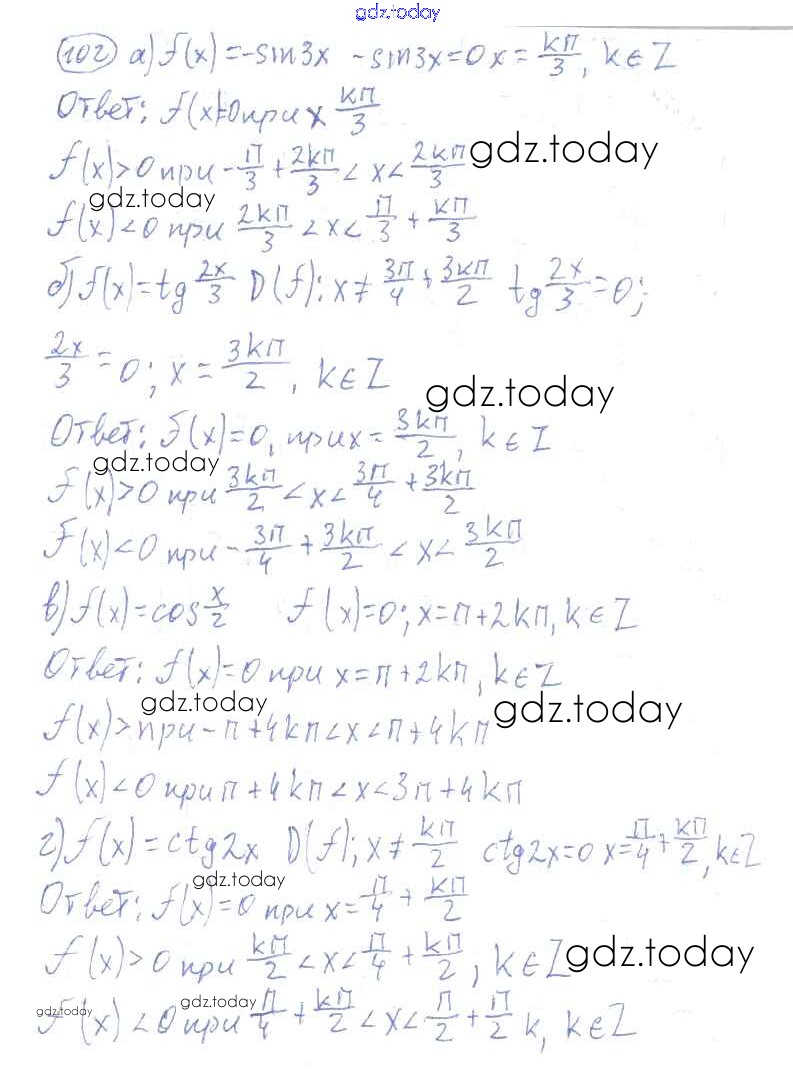 gdz.today
102 а) f(x) = -sin3x -sin3x = 0 x = kπ/3, k ∈ Z
Ответ: f(x)=0 при x kπ/3
f(x)>0 при -π/3 + 2kπ/3 < x < 2kπ/3 gdz.today
gdz.today
f(x)<0 при 2kπ/3 < x < π/3 + kπ/3
б) f(x) = tg 2x/3 D(f): x ≠ 3π/4 + 3kπ/2 tg 2x/3 = 0;
2x/3 = 0; x = 3kπ/2, k ∈ Z
gdz.today
Ответ: f(x)=0, при x = 3kπ/2, k ∈ Z
gdz.today
f(x)>0 при 3kπ/2 < x < 3π/4 + 3kπ/2
f(x)<0 при -3π/4 + 3kπ/2 < x < 3kπ/2
в) f(x) = cos x/2 f(x)=0; x=π+2kπ, k ∈ Z
Ответ: f(x)=0 при x=π+2kπ, k ∈ Z
gdz.today gdz.today
f(x)> при -π+4kπ<x<π+4kπ
f(x)<0 при π+4kπ<x<3π+4kπ
г) f(x) = ctg2x D(f); x ≠ kπ/2 ctg2x=0 x=π/4+kπ/2, k∈Z
gdz.today
Ответ: f(x)=0 при x=π/4 + kπ/2
f(x)>0 при kπ/2 < x < π/4 + kπ/2, k ∈ Z gdz.today
gdz.today gdz.today
f(x)<0 при π/4 + kπ/2 < x < π/2 + π/2 k, k ∈ Z